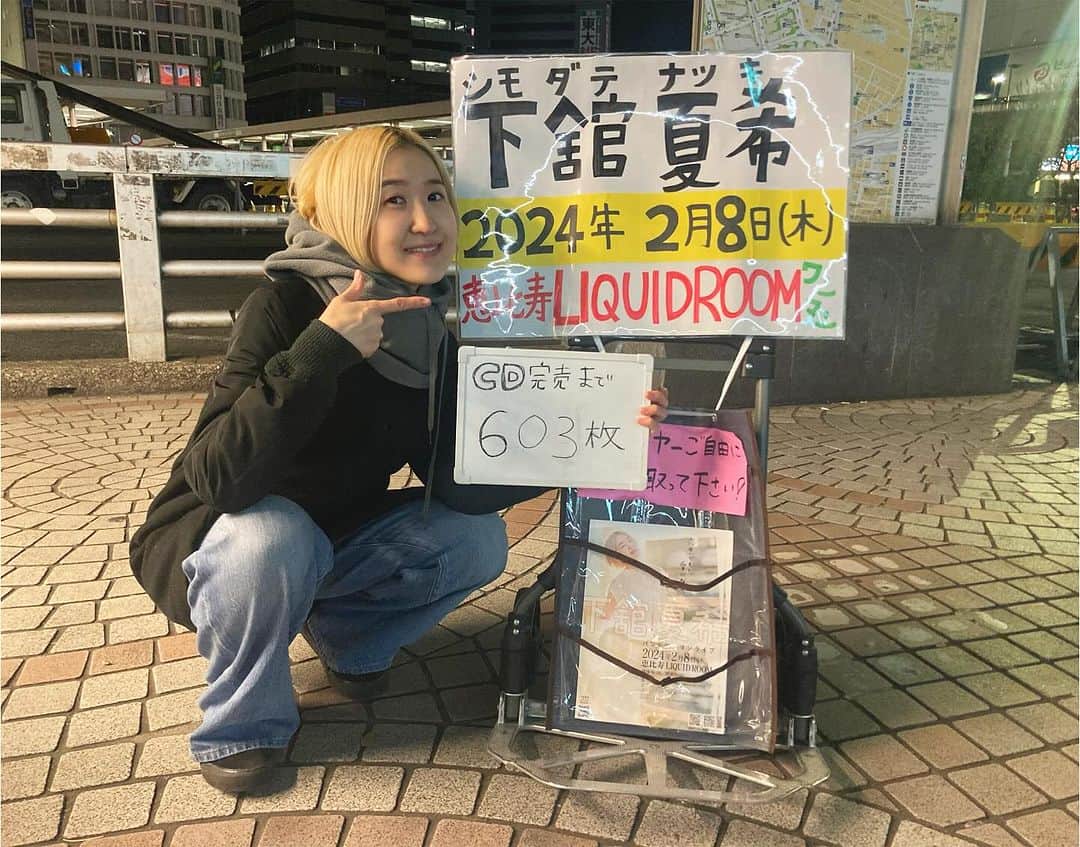 シモダテ ナツキ
下舘 夏希
2024年 2月8日(木)
恵比寿 LIQUIDROOM ワンマン
CD完売まで
603枚
ヤーご自由に
取って下さい?
下舘 夏希
2024年2月8日
恵比寿 LIQUIDROOM